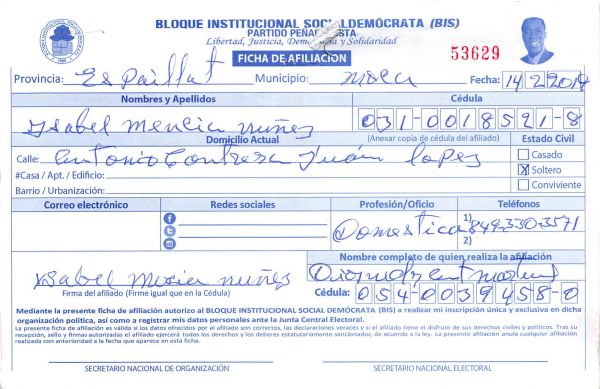 BLOQUE INSTITUCIONAL SOCIALDEMÓCRATA (BIS)
PARTIDO PEÑAGOMISTA
Libertad, Justicia, Democracia y Solidaridad
FICHA DE AFILIACIÓN
53629
Provincia: Espaillat Municipio: moca Fecha: 14 2 2019
Nombres y Apellidos Cédula
Ysabel Mencia Nuñez 031-0018521-8
Domicilio Actual (Anexar copia de cédula del afiliado) Estado Civil
Calle: Antonio Contrera Juán Lopez Casado
#Casa / Apt. / Edificio: X Soltero
Barrio / Urbanización: Conviviente
Correo electrónico Redes sociales Profesión/Oficio Teléfonos
Domestica 1) 849-330-3571
2)
Nombre completo de quien realiza la afiliación
Ysabel Mecia nuñez
Firma del afiliado (Firme igual que en la Cédula) Cédula: 054-0039458-0
Mediante la presente ficha de afiliación autorizo al BLOQUE INSTITUCIONAL SOCIAL DEMÓCRATA (BIS) a realizar mi inscripción única y exclusiva en dicha
organización política, así como a registrar mis datos personales ante la Junta Central Electoral.
La presente ficha de afiliación es válida si los datos ofrecidos por el afiliado son correctos, las declaraciones veraces y si el afiliado tiene el disfrute de sus derechos civiles y políticos. Tras su
recepción, sello y firmas autorizadas el afiliado ejercerá todos los derechos y los deberes estatutariamente sancionados, de acuerdo a la ley. La presente afiliación anula cualquier afiliación
realizada con anterioridad a la fecha que aparece en esta ficha.
SECRETARIO NACIONAL DE ORGANIZACIÓN SECRETARIO NACIONAL ELECTORAL